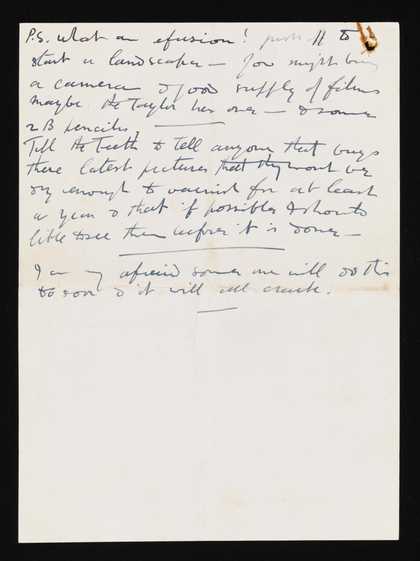 P.S. What an efusion! push off to
start a landscape — you might bring
a camera & good supply of films
maybe Taylor has one — & some
2 B pencils,
Tell to tell anyone that buys
these latest pictures that they wont be
dry enough to varnish for at least
a year & that if possible I should
like to see them before it is done —
I am afraid some one will do this
to soon & it will all crack.